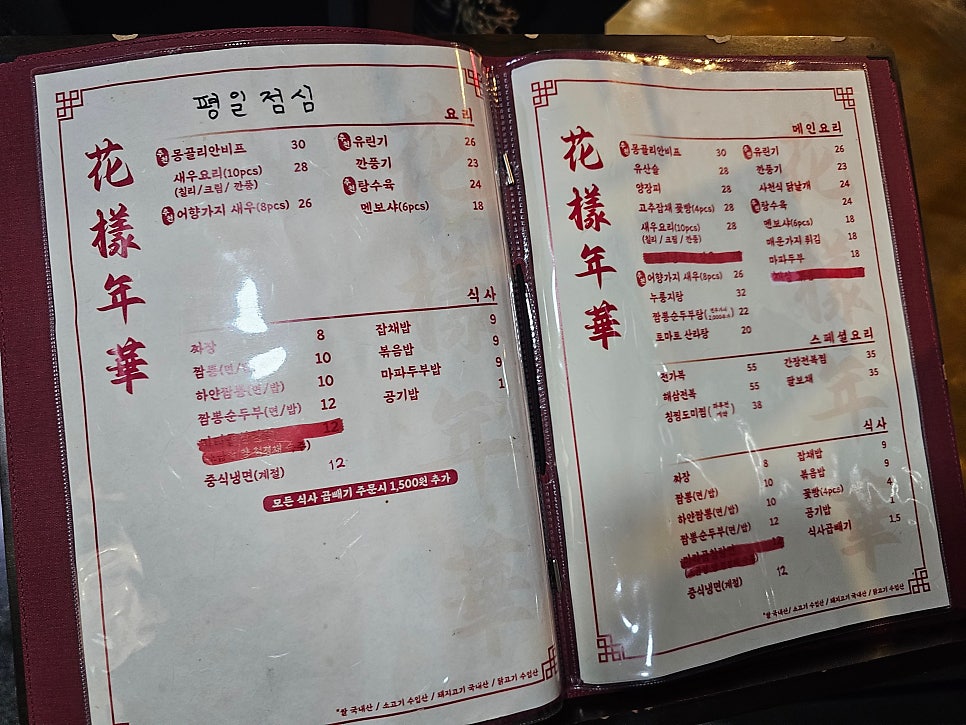 평일 점심
花樣年華
요리
추천 몽골리안비프 30
새우요리(10pcs) 28
(칠리/크림/깐풍)
추천 어향가지 새우(8pcs) 26
추천 유린기 26
깐풍기 23
추천 탕수육 24
멘보샤(6pcs) 18
식사
짜장 8
짬뽕(면/밥) 10
하얀짬뽕(면/밥) 10
짬뽕순두부(면/밥) 12
12
중식냉면(계절) 12
잡채밥 9
볶음밥 9
마파두부밥 9
공기밥 1
모든 식사 곱빼기 주문시 1,500원 추가
*쌀 국내산 / 소고기 수입산 / 돼지고기 국내산 / 닭고기 수입산
花樣年華
메인요리
추천 몽골리안비프 30
유산슬 28
양장피 28
고추잡채 꽃빵(4pcs) 28
새우요리(10pcs) 28
(칠리 / 크림 / 깐풍)
추천 어향가지 새우(8pcs) 26
누룽지탕 32
짬뽕순두부탕 22
토마토 산라탕 20
추천 유린기 26
깐풍기 23
사천식 닭날개 24
추천 탕수육 24
멘보샤(6pcs) 18
매운가지 튀김 18
마파두부 18
스페셜요리
전가복 55
해삼전복 55
칭찡도미찜 38
간장전복찜 35
팔보채 35
식사
짜장 8
짬뽕(면/밥) 10
하얀짬뽕(면/밥) 10
짬뽕순두부(면/밥) 12
중식냉면(계절) 12
잡채밥 9
볶음밥 9
꽃빵(4pcs) 4
공기밥 1
식사곱빼기 1.5
*쌀 국내산/ 소고기 수입산 / 돼지고기 국내산 / 닭고기 수입산